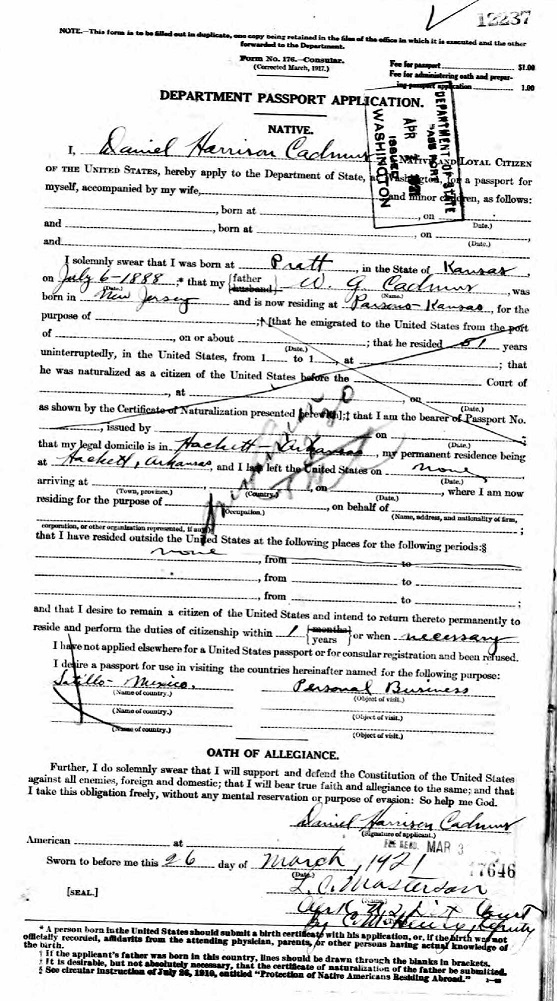 12237
NOTE.—This form is to be filled out in duplicate, one copy being retained in the files of the office in which it is executed and the other
forwarded to the Department.
Form No. 176.—Consular.
(Corrected March, 1917.)
Fee for passport $1.00
Fee for administering oath and prepar-
ing passport application 1.00
DEPARTMENT PASSPORT APPLICATION.
DEPARTMENT OF STATE
PASSPORT
APR 1921
ISSUED
WASHINGTON
NATIVE.
I, Daniel Harrison Cadmus, a NATIVE AND LOYAL CITIZEN
OF THE UNITED STATES, hereby apply to the Department of State, at Washington, for a passport for
myself, accompanied by my wife, and minor children, as follows:
, born at , on ,
and , born at , on (Date.) ,
and (Date.)
I solemnly swear that I was born at Pratt, in the State of Kansas,
on July 6-1888,* that my {father husband} W. G. Cadmus, was
(Date.) (Name.)
born in New Jersey and is now residing at Parsons-Kansas, for the
purpose of ;† [that he emigrated to the United States from the port
of , on or about (Date.) ; that he resided 61 years
uninterruptedly, in the United States, from 1 to 1 , at ; that
he was naturalized as a citizen of the United States before the Court of
, at , on (Date.) ,
as shown by the Certificate of Naturalization presented herewith];‡ that I am the bearer of Passport No.
, issued by on (Date.) ;
that my legal domicile is in Hackett Arkansas, my permanent residence being
at Hackett, Arkansas, and I last left the United States on none
(Date.)
arriving at (Town, province.) (Country.) , on (Date.) , where I am now
residing for the purpose of (Occupation.) , on behalf of (Name, address, and nationality of firm,
corporation, or other organization represented, if any.) ;
that I have resided outside the United States at the following places for the following periods:§
none , from to ,
, from to ,
, from to ;
and that I desire to remain a citizen of the United States and intend to return thereto permanently to
reside and perform the duties of citizenship within 1 {months years} or when necessary
I have not applied elsewhere for a United States passport or for consular registration and been refused.
I desire a passport for use in visiting the countries hereinafter named for the following purpose:
Satillo- Mexico. Personal Business
(Name of country.) (Object of visit.)
(Name of country.) (Object of visit.)
(Name of country.) (Object of visit.)
OATH OF ALLEGIANCE.
Further, I do solemnly swear that I will support and defend the Constitution of the United States
against all enemies, foreign and domestic; that I will bear true faith and allegiance to the same; and that
I take this obligation freely, without any mental reservation or purpose of evasion: So help me God.
Daniel Harrison Cadmus
(Signature of applicant.)
American at FEE RECD. MAR 3
Sworn to before me this 26 day of March, 1921 17646
(Date.)
[SEAL.] L. C. Masterson
Court
By Deputy
* A person born in the United States should submit a birth certificate with his application, or, if the birth was not
officially recorded, affidavits from the attending physician, parents, or other persons having actual knowledge of
the birth.
† If the applicant's father was born in this country, lines should be drawn through the blanks in brackets.
‡ It is desirable, but not absolutely necessary, that the certificate of naturalization of the father be submitted.
§ See circular instruction of July 26, 1910, entitled "Protection of Native Americans Residing Abroad."